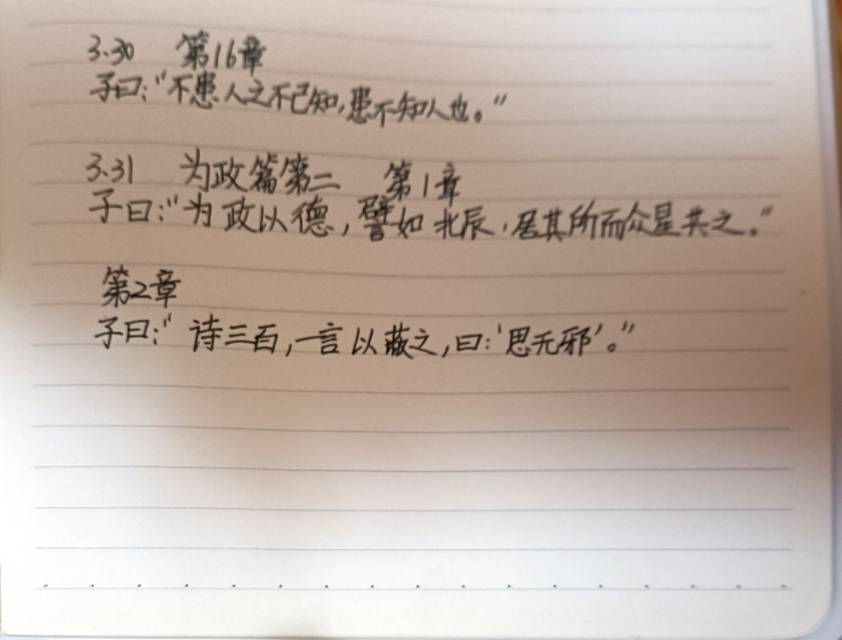 3.30 第16章
子曰:“不患人之不己知,患不知人也。”
3.31 为政篇第二 第1章
子曰:“为政以德,譬如北辰,居其所而众星共之。”
第2章
子曰:“诗三百,一言以蔽之,曰:‘思无邪’。”